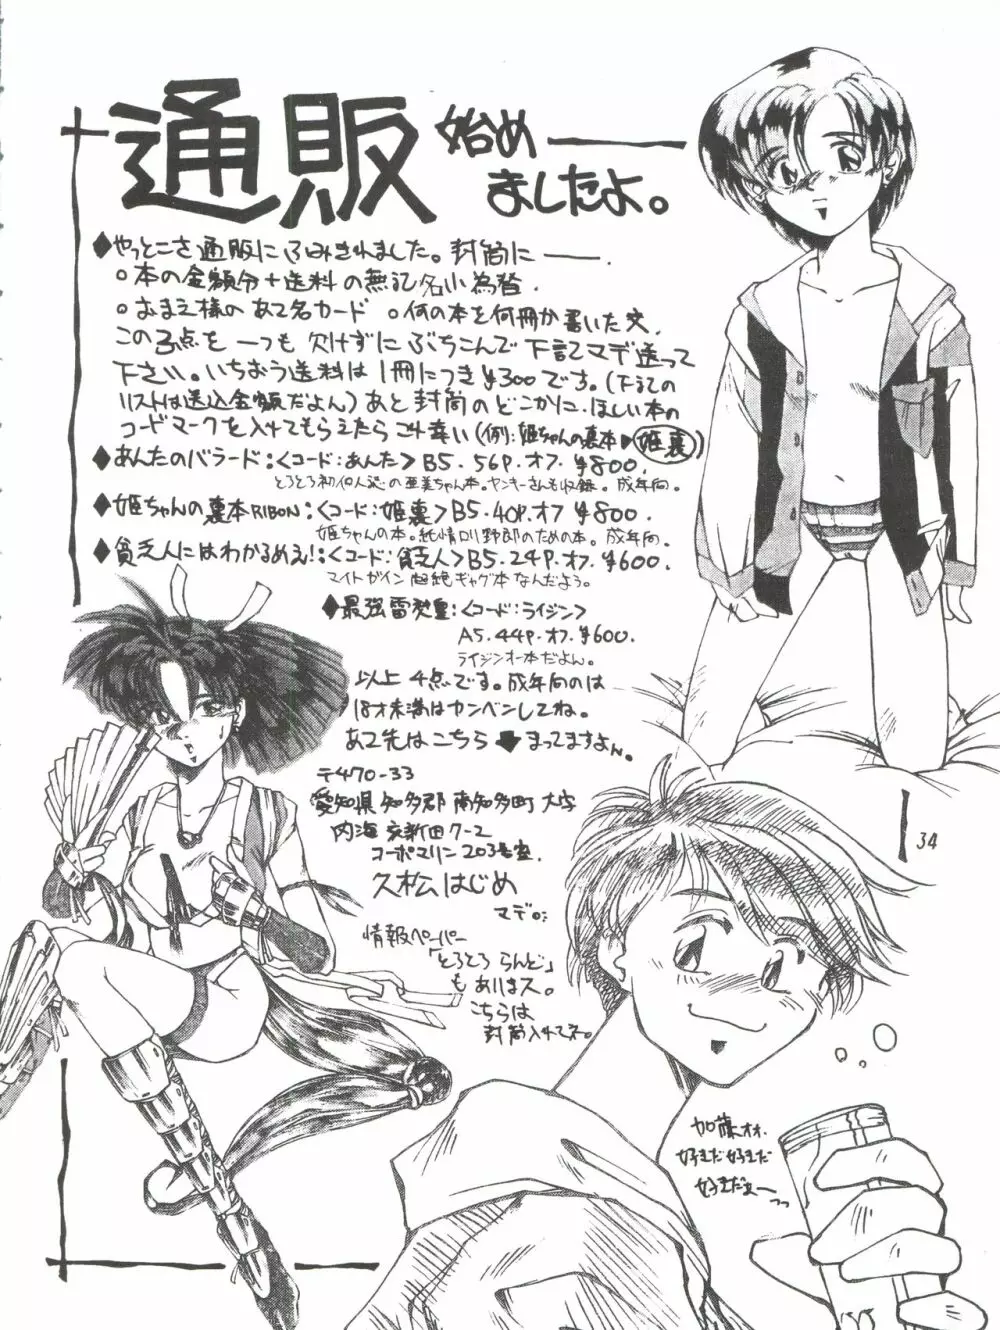 通販 始め
ましたよ。
◆やっとこさ通販にふみきれました。封筒に――.
○本の金額分+送料の無記名小為替.
○おまえ様のあて名カード ○何の本を何冊か書いた文.
この3点を一つも欠けずにぶちこんで下記マデ送って
下さい。いちおう送料は1冊につき¥300です。(下記の
リストは送込金額だよん)あと封筒のどこかに、ほしい本の
コードマークを入れてもらえたらこれ幸い(例:姫ちゃんの裏本▶姫裏)
◆あんたのバラード:<コード:あんた>B5・56P・オフ¥800.
とろとろ初個人誌の亜美ちゃん本。ヤンキーさんも収録。成年向。
◆姫ちゃんの裏本RIBON:<コード:姫裏>B5・40P・オフ¥800.
姫ちゃんの本。純情ロリ野郎のための本。成年向.
◆貧乏人にはわかるめえ!:<コード:貧乏人>B5・24P・オフ.¥600.
マイトガイン超絶ギャグ本なんだよう。
◆最強雷発皇:<コード:ライジン>
A5・44P・オフ.¥600.
ライジンオー本だよん。
以上4点です。成年向のは
18才未満はカンベンしてね。
あて先はこちら➡まってますよん。
〒470-33
愛知県知多郡南知多町大字
内海字新田7-2
コーポマリン203号室.
久松はじめ
マデ。:
情報ペーパー
「とろとろらんど」
もあります。
こちらは
封筒入れてネ。
34
加藤オオ.
好きだ好きだ
好きだぁーっっ